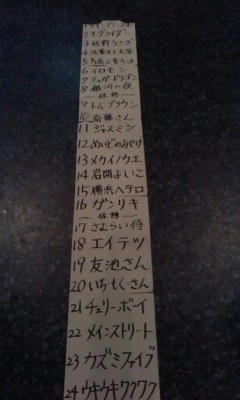 2 モグライダー
3 牧野うさぎ
6 イロモン
7 シュガードラゴン
8 銀河の夜
― 休憩 ―
9 トムブラウン
10 斎藤さん
11 ジャスミン
12 めいどのみやげ
13 メカイノウエ
14 岩関よいこ
15 横浜ヘテロ
16 ガンリキ
― 休憩 ―
17 さむらい侍
18 エイテツ
19 友池さん
20 いち・もく・さん
21 チェリーボーイ
22 メインストリート
23 カズミファイブ
24 ウキウキワクワク